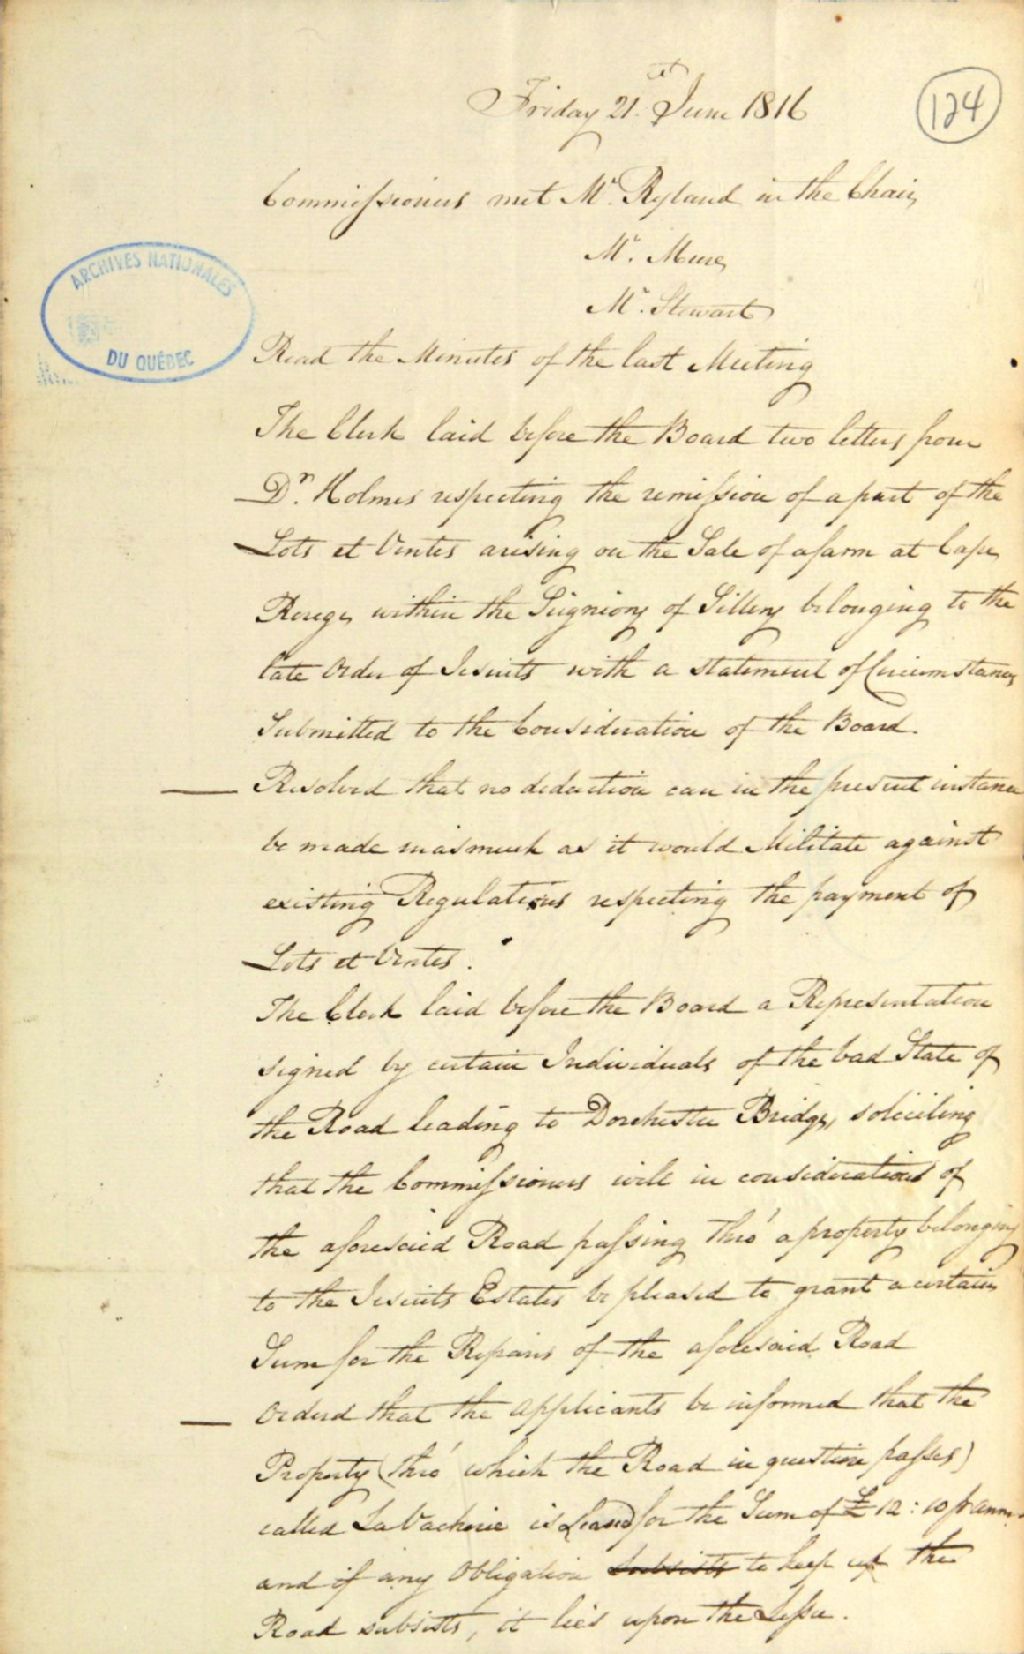 Friday 21st June 1816
124
Commissioners met Mr. Ryland in the Chair,
Mr. Mure,
Mr. Stewart
ARCHIVES NATIONALES
DU QUÉBEC
Read the Minutes of the last Meeting
The Clerk laid before the Board two letters from
Dr. Holmes respecting the remission of a part of the
Lots et Ventes arising on the Sale of a farm at Cape
Rouge, within the Seigniory of Sillery belonging to the
late Order of Jesuits with a statement of Circumstances
Submitted to the Consideration of the Board.
Resolved that no deduction can in the present instance
be made inasmuch as it would Militate against
existing Regulations respecting the payment of
Lots et Ventes.
The Clerk laid before the Board a Representation
signed by certain Individuals of the bad State of
the Road leading to Dorchester Bridge, soliciting
that the Commissioners will in consideration of
the aforesaid Road passing thro' a property belonging
to the Jesuits Estates be pleased to grant a certain
Sum for the Repairs of the aforesaid Road
Ordered that the applicants be informed that the
Property (thro' which the Road in question passes)
called La Vacherie is Leased for the Sum of £12:10 pr annum
and if any Obligation subsists to keep up the
Road subsists, it lies upon the Lessee.